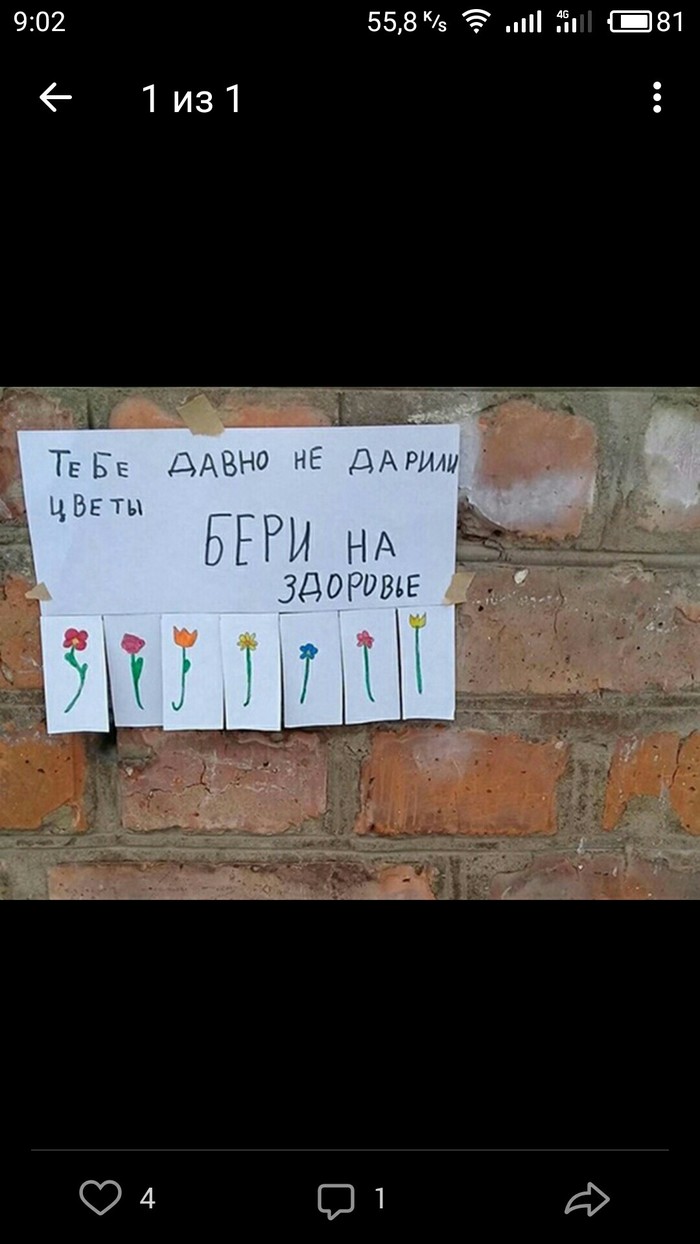 9:02 55,8 К/s 4G 81
1 из 1
ТЕБЕ ДАВНО НЕ ДАРИЛИ
ЦВЕТЫ
БЕРИ НА
ЗДОРОВЬЕ
4 1